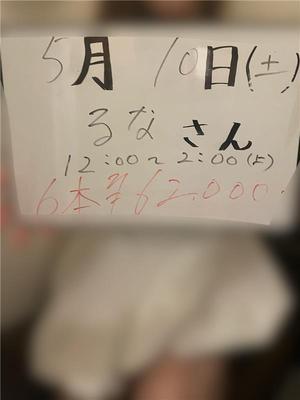 5月 10日(土)
るな さん
12:00〜2:00(よ)
6本 ¥62.000